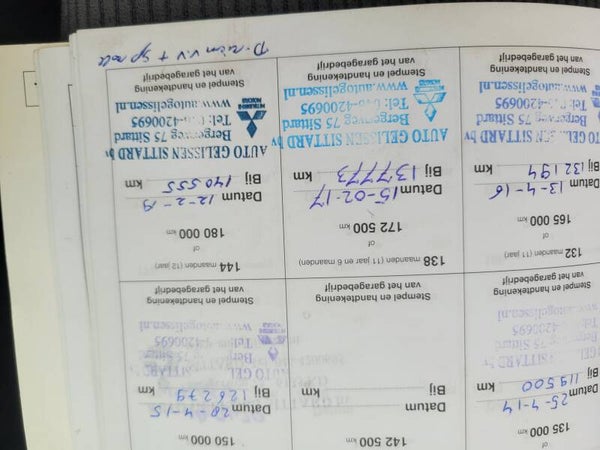 135 000 km
Datum 25-4-14
Bij 119500 km
SITTARD bv
75 Sittard
4200695
Stempel en handtekening
van het garagebedrijf
142 500 km
Datum
Bij km
Stempel en handtekening
van het garagebedrijf
150 000 km
Datum 20-4-15
Bij 126279 km
AUTO GEL SITTARD bv
Ber 75 S
Tel: 4200695
www.autogelissen.nl
Stempel en handtekening
van het garagebedrijf
132 maanden (11 jaar)
of
165 000 km
Datum 13-4-16
Bij 132194 km
AUTO GEL SEN SITTARD bv
weg 75 Sittard
4200695
www.autogelissen.nl
Stempel en handtekening
van het garagebedrijf
138 maanden (11 jaar en 6 maanden)
of
172 500 km
Datum 15-02-17
Bij 137773 km
AUTO GELISSEN SITTARD bv
Bergerweg 75 Sittard
Tel: 046-4200695
www.autogelissen.nl
Stempel en handtekening
van het garagebedrijf
144 maanden (12 jaar)
of
180 000 km
Datum 12-2-19
Bij 140555 km
AUTO GELISSEN SITTARD bv
Bergerweg 75 Sittard
MITSUBISHI MOTORS
Tel: 4200695
www.autogelissen.nl
Stempel en handtekening
van het garagebedrijf
D-riem V.V +